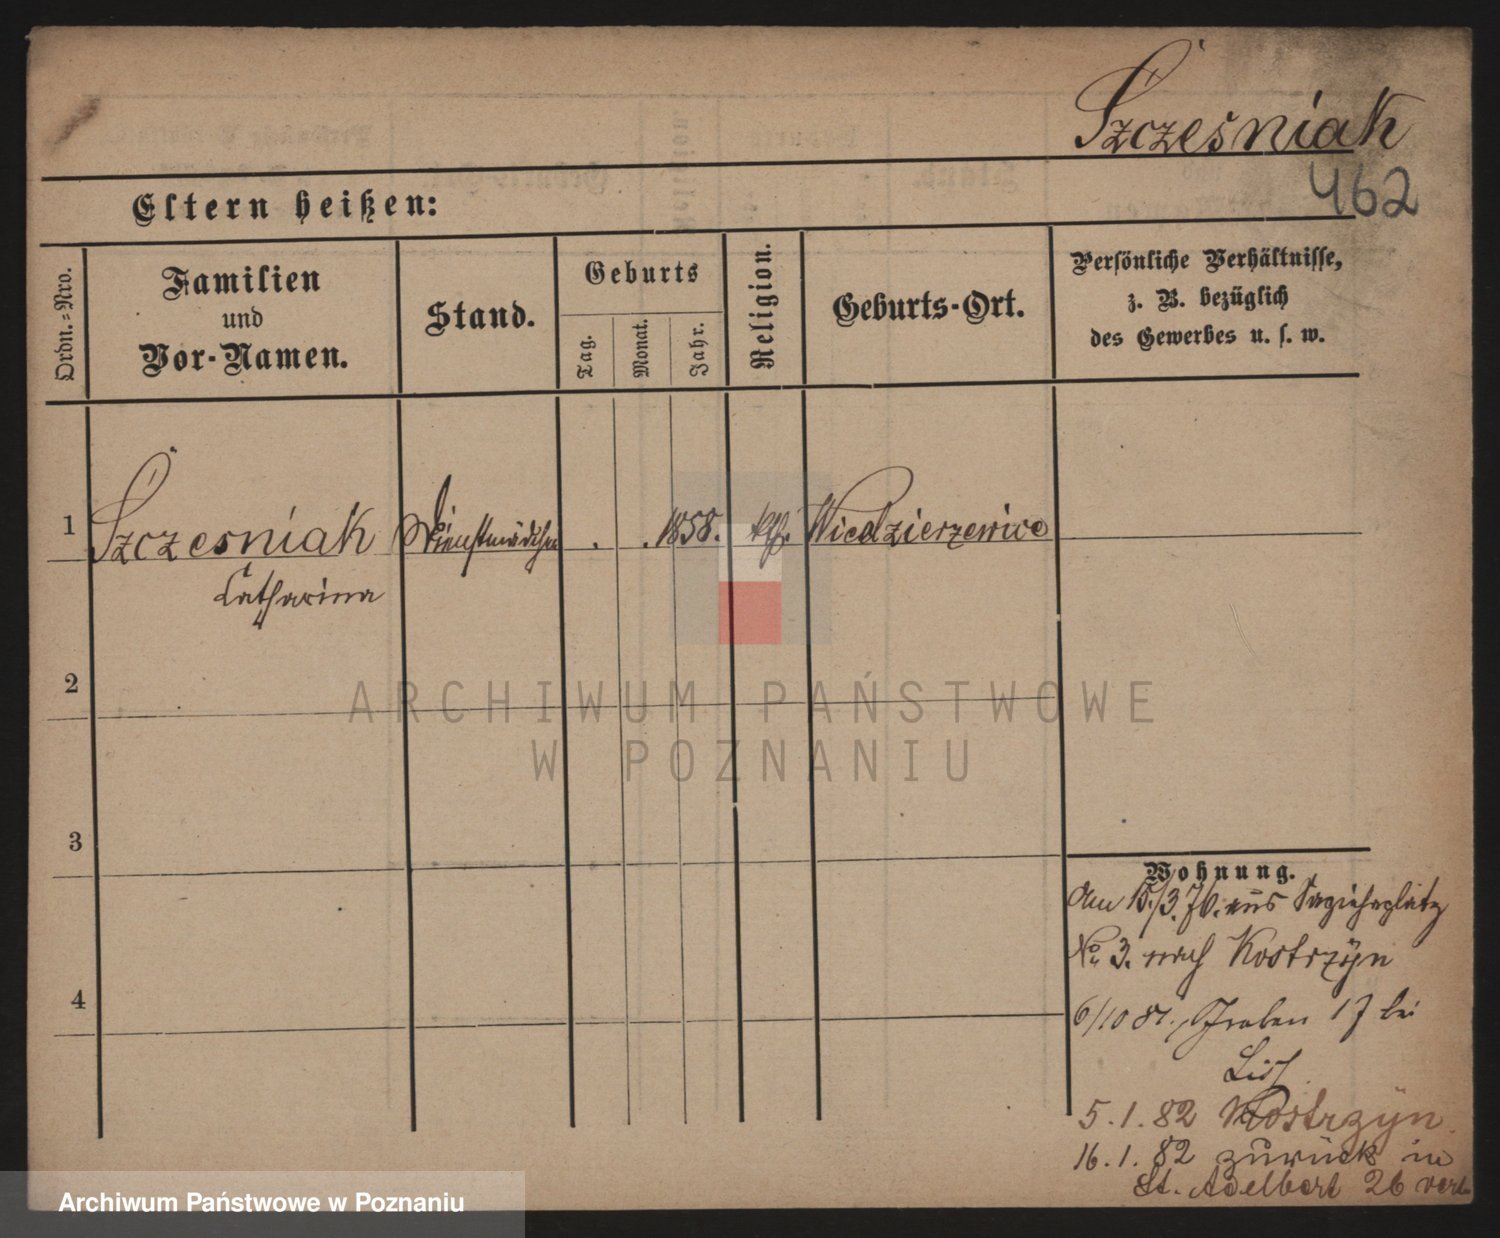 Szczesniak
462
Eltern heißen:
Ordn.=Nro.
Familien
und
Vor-Namen.
Stand.
Geburts
Tag.
Monat.
Jahr.
Religion.
Geburts-Ort.
Persönliche Verhältnisse,
z. B. bezüglich
des Gewerbes u. s. w.
1
Szczesniak Dienstmädchen . . 1858. kth. Wiedzierzewice
Catharina
2
3
4
Wohnung.
Am 15./3. 76. aus Sapiehaplatz
No. 3. nach Kostrzyn
6/10 81. Graben 17 bei
5.1.82 Kostrzyn.
16.1.82 zurück in
St. Adelbert 26
ARCHIWUM PAŃSTWOWE
W POZNANIU
Archiwum Państwowe w Poznaniu